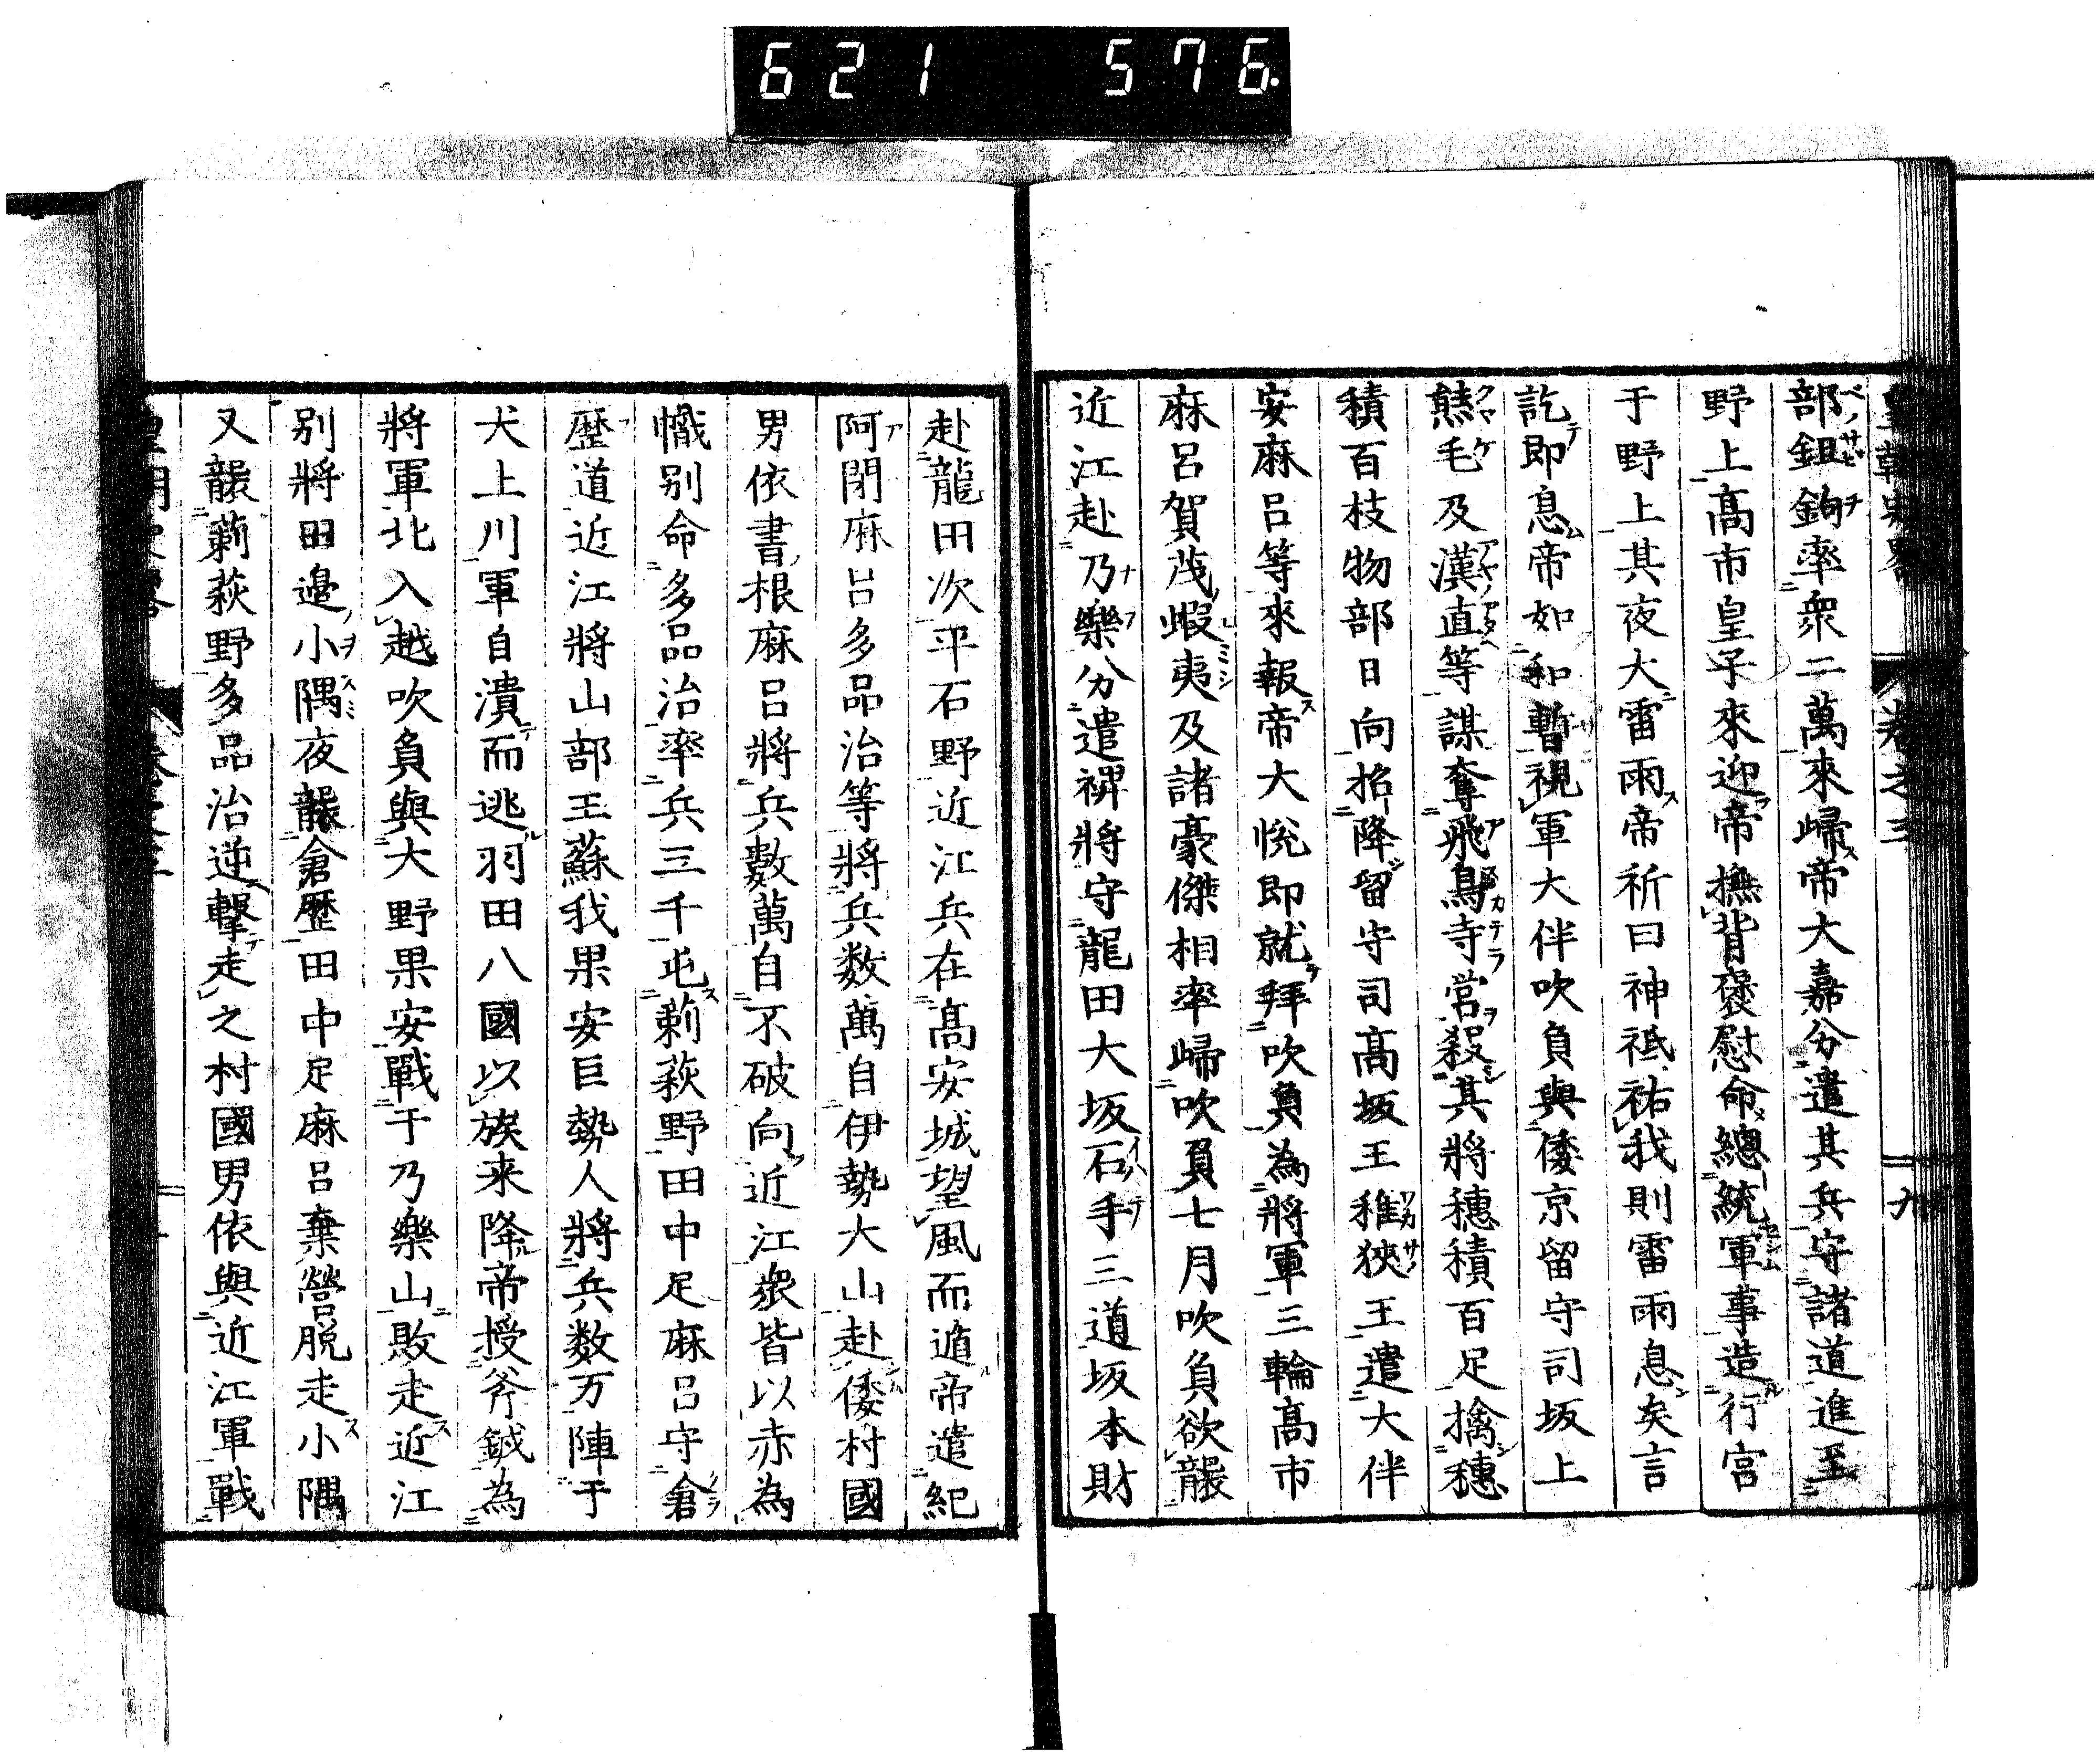 621 576.
部鉏鉤率衆二萬來歸帝大嘉分遣其兵守諸道進至
野上高市皇子來迎帝撫背褒慰命總統軍事造行宮
于野上其夜大雷雨帝祈曰神祇祐我則雷雨息矣言
訖即息帝如和暫視軍大伴吹負與倭京留守司坂上
熊毛及漢直等謀奪飛鳥寺営殺其將穗積百足擒穗
積百枝物部日向招降留守司高坂王稚狹王遣大伴
安麻呂等來報帝大悅即就拜吹負為將軍三輪高市
麻呂賀茂蝦夷及諸豪傑相率歸吹負七月吹負欲襲
近江赴乃樂分遣裨將守龍田大坂石手三道坂本財
赴龍田次平石野近江兵在高安城望風而遁帝遣紀
阿閇麻呂多品治等將兵数萬自伊勢大山赴倭村國
男依書根麻呂將兵數萬自不破向近江衆皆以赤為
幟別命多品治率兵三千屯莿萩野田中足麻呂守倉
歷道近江將山部王蘇我果安巨勢人將兵数万陣于
犬上川軍自潰而逃羽田八國以族来降帝授斧鉞為
將軍北入越吹負與大野果安戰于乃樂山敗走近江
別將田邊小隅夜襲倉歷田中足麻呂棄營脫走小隅
又襲莿萩野多品治逆擊走之村國男依與近江軍戰